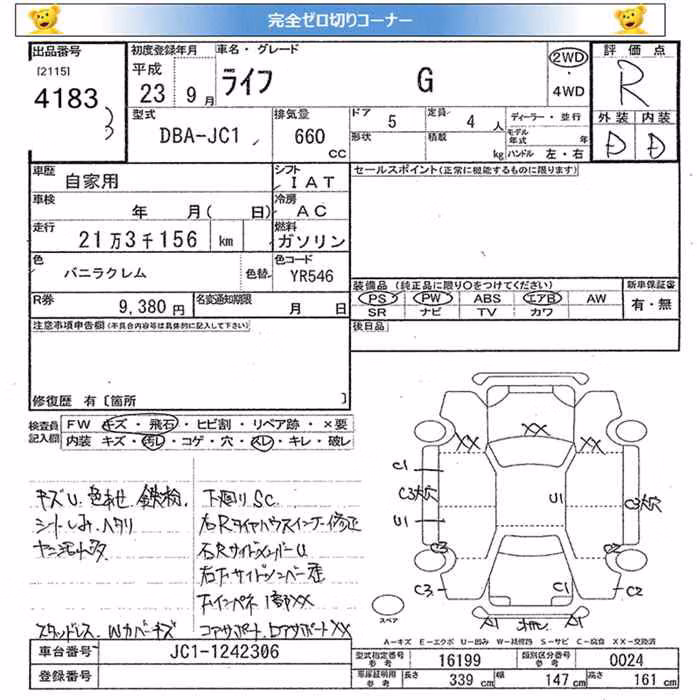 完全ゼロ切りコーナー
出品番号
[2115]
4183
3
初度登録年月
平成
23 9月
車名・グレード
ライフ G
2WD
・
4WD
評価点
R
外装 内装
D D
型式
DBA-JC1
排気量
660
CC
ドア
5
定員
4 人
形状
積載
kg
ディーラー・並行
モデル年式 年
ハンドル 左・右
車歴
自家用
シフト
IAT
車検
年 月( 日)
冷房
AC
走行
21万3千156 km
燃料
ガソリン
色
バニラクレム
色替
色コード
YR546
R券
9,380円
名変通知期限
月 日
セールスポイント(正常に機能するものに限ります)
装備品 (純正品に限り○をつけてください)
PS PW ABS エアB AW
SR ナビ TV カワ
新車保証書
有・無
後日品
注意事項申告欄(不具合内容等は具体的に記入して下さい)
修復歴 有〔箇所 〕
検査員
記入欄
FW キズ・飛石・ヒビ割・リペア跡・×要
内装 キズ・汚レ・コゲ・穴・スレ・キレ・破レ
キズU 色あせ 鉄粉
シートしみ ハタリ
ヤニ汚れ多
スタッドレス Wカバーキズ
下廻りSC
右Rタイヤハウスインナー修正
右RサイドメンバーU
右Fサイドメンバー歪
コアサポート LコアサポートXX
XX XX XX
C1
C3大穴
U1
C3
C3
U1
C3大穴
C2
C2
C1
A1 A1
スペア
A-キズ E-エクボ U-凹み W-補修跡 S-サビ C-腐食 XX-交換済
車台番号
JC1-1242306
登録番号
型式指定番号
参考
16199
類別区分番号
参考
0024
車庫証明用
参考
長さ
339 cm
幅
147 cm
高さ
161 cm